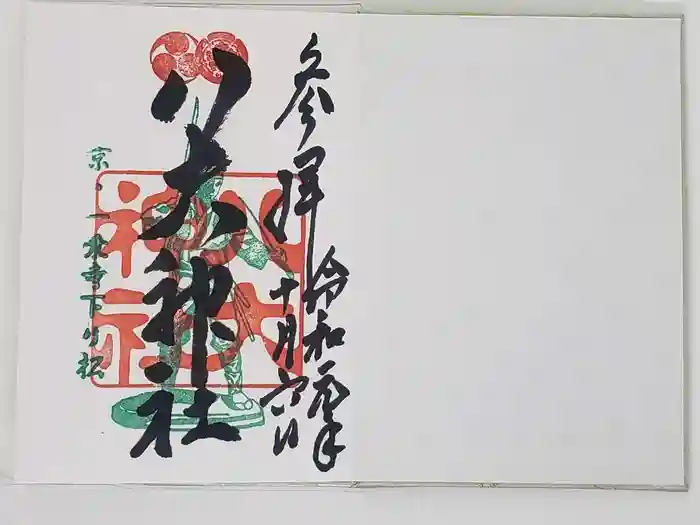 参拝
令和元年
十月六日
八大神社
八大神社
京・一乗寺下り松